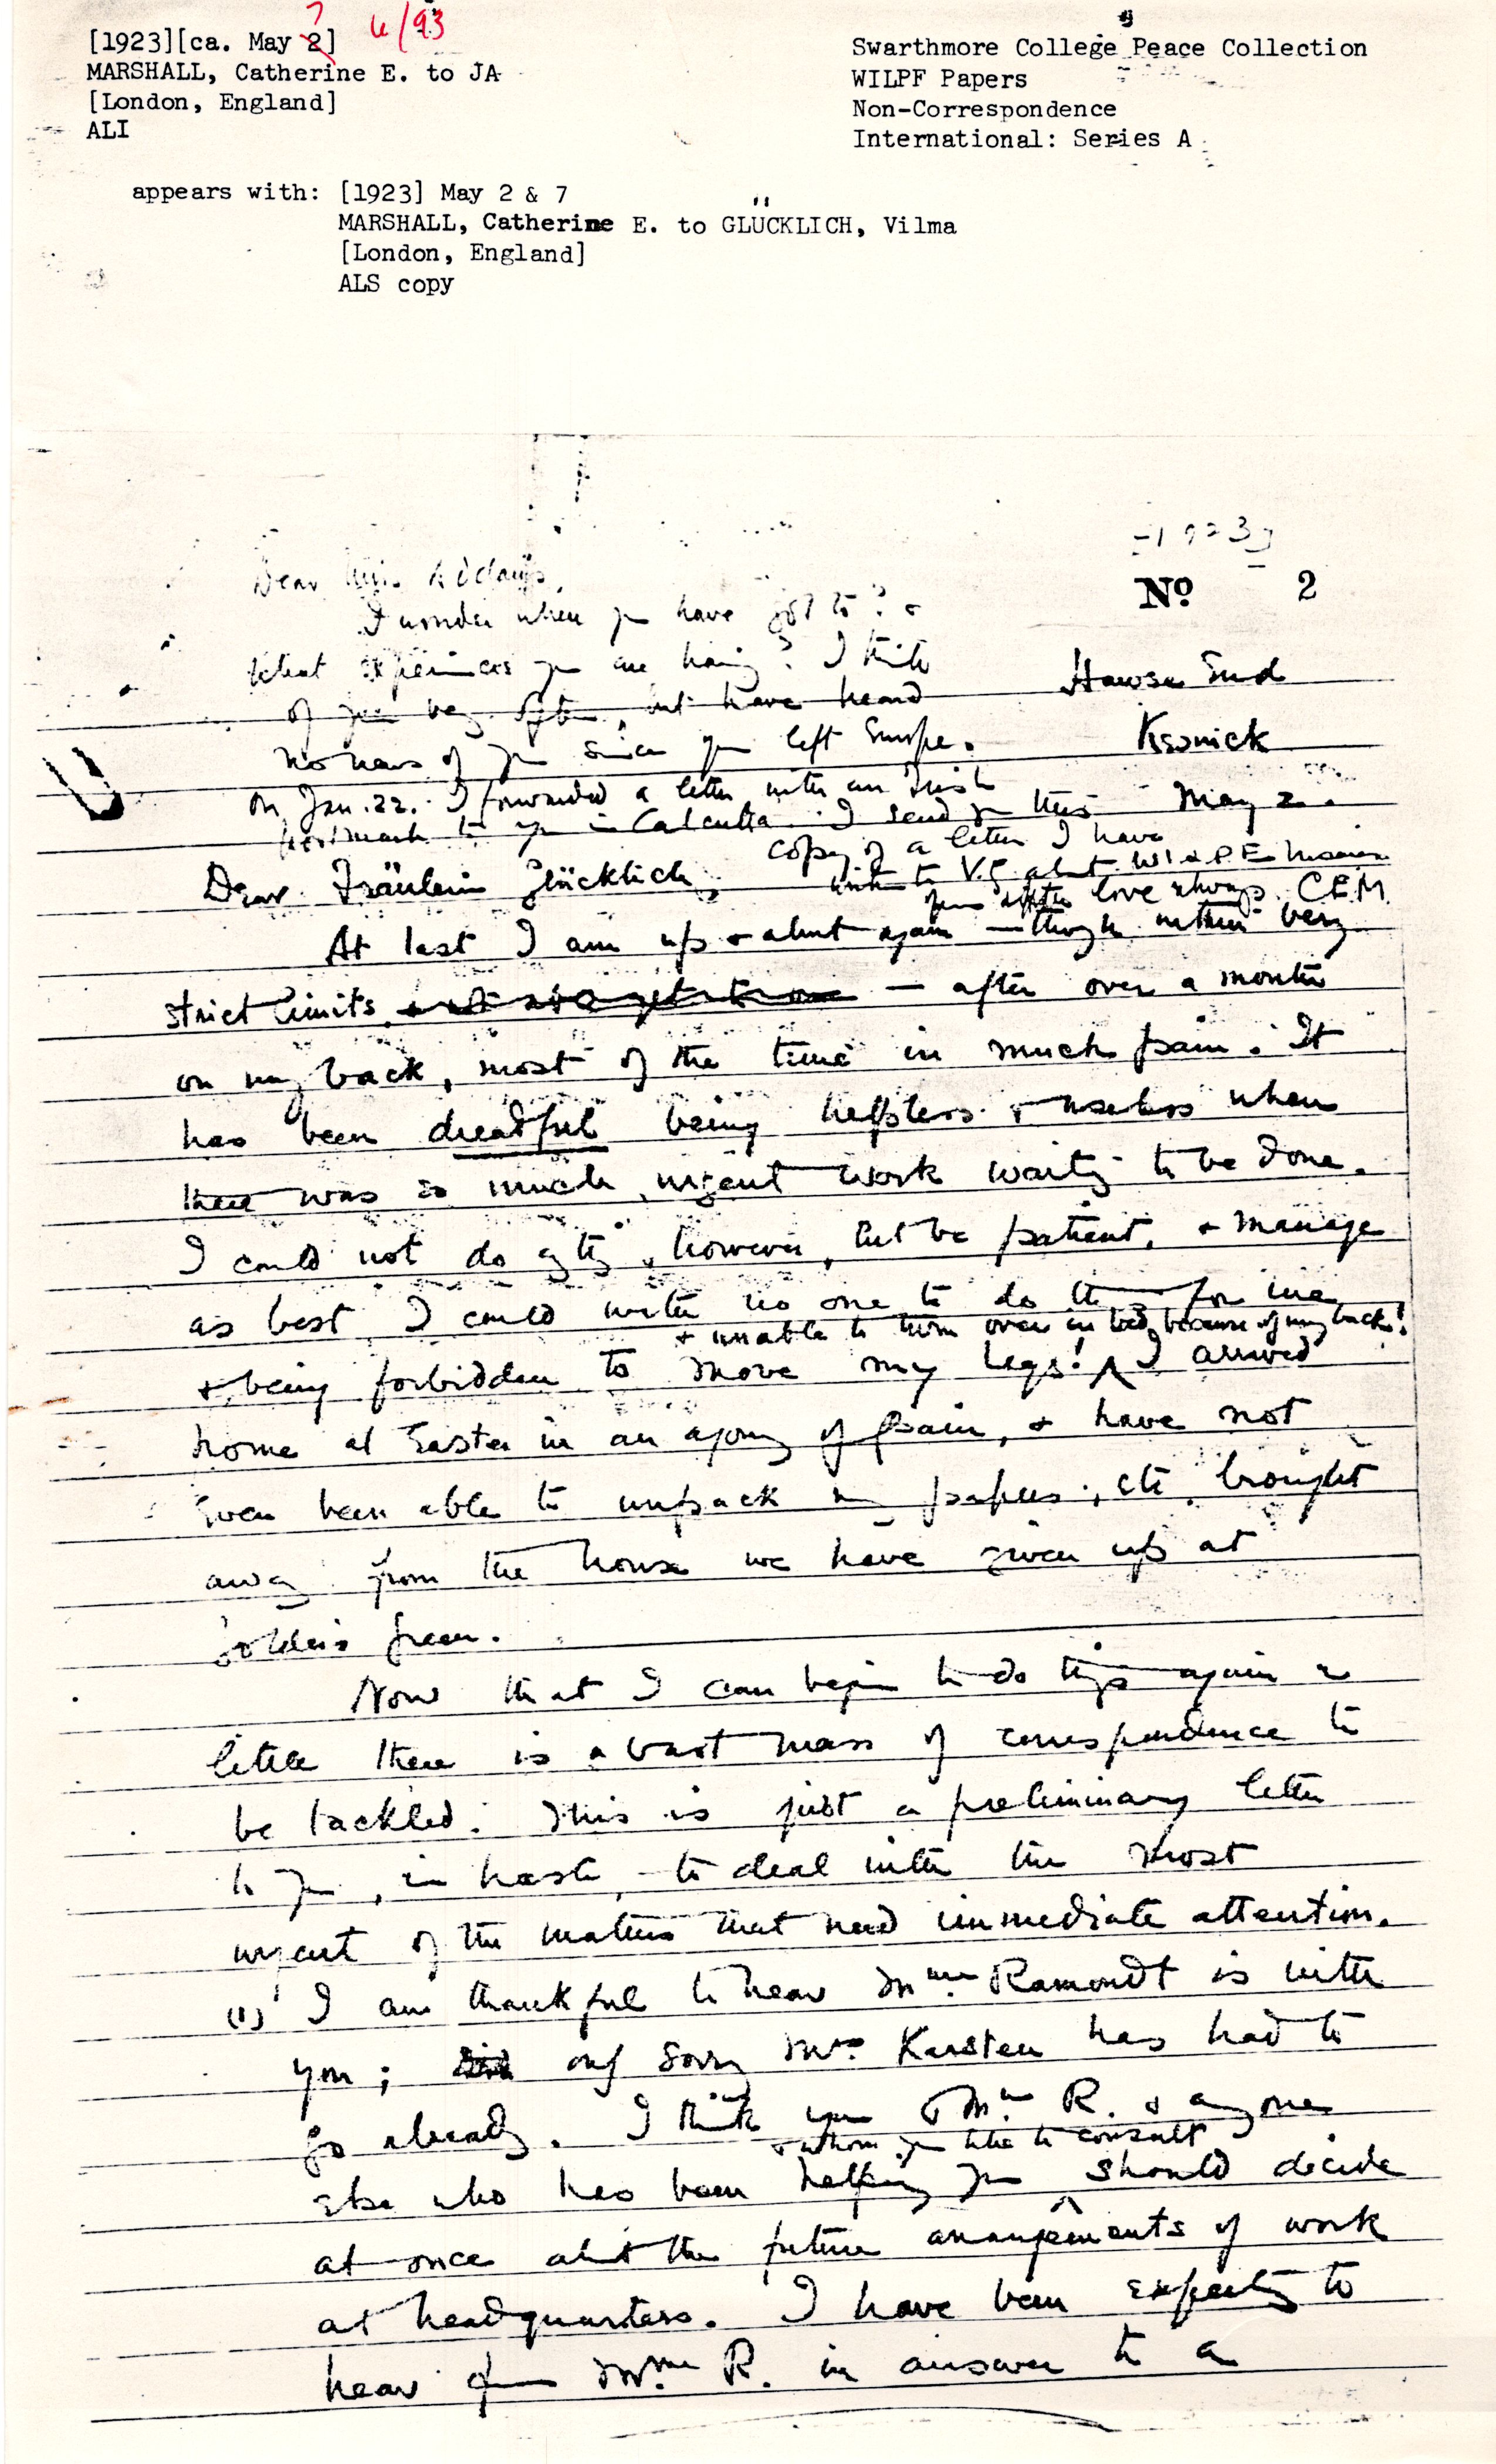 [1923][ca. May 2] ? 4/93
MARSHALL, Catherine E. to JA
[London, England]
ALI
Swarthmore College Peace Collection
WILPF Papers
Non-Correspondence
International: Series A
appears with: [1923] May 2 & 7
MARSHALL, Catherine E. to GLÜCKLICH, Vilma
[London, England]
ALS copy
-1923]
Nº 2
Dear Miss Addams,
I wonder where you have got to? &
what experiences you are having? I think
of you very often, but have heard
no news of you since you left Europe.
On Jan. 22. I forwarded a letter with an Irish
postmark to you in Calcutta. I send you this
copy of a letter I have
written to V.G. about W.I.L.P.F.
yours love always CEM.
Hawse End
Keswick
May 2.
Dear Fräulein Glücklich,
At last I am up & about again – though within very
strict limits – after over a month
on my back, most of the time in much pain. It
has been dreadful being helpless & useless when
there was so much urgent work waiting to be done.
I could not do anything, however, but be patient, & manage
as best I could with no one to do things for me
& being forbidden to move my legs! & unable to turn over in bed, because of my back! I arrived
home at Easter in an agony of pain, & have not
even been able to unpack my papers, etc. brought
away from the house we have given up at
Golders Green.
Now that I can begin to do things again a
little there is a vast mass of correspondence to
be tackled. This is just a preliminary letter
to you, in haste, to deal with the most
urgent of the matters that need immediate attention.
(1) I am thankful to hear Mme. Ramondt is with
you; only sorry Mrs. Karsten has had to
go already. I think you & Mme R. & anyone
else who has been helping you & whom you like to consult should decide
at once about the future arrangements of work
at headquarters. I have been expecting to
hear from Mme R. in answer to a